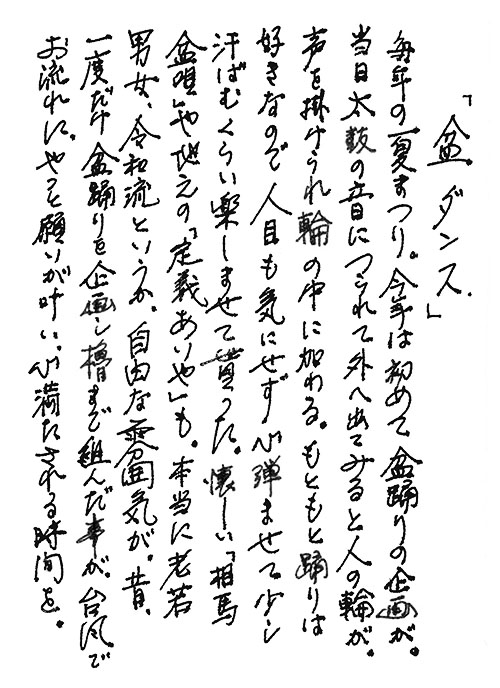 「盆ダンス」
毎年の夏まつり。今年は初めて盆踊りの企画が。
当日太鼓の音につられて外へ出てみると人の輪が。
声を掛けられ輪の中に加わる。もともと踊りは
好きなので人目も気にせず心弾ませて少し
汗ばむくらい楽しませて貰った。懐しい「相馬
盆唄」や地元の「定義あいや」も。本当に老若
男女、令和流というか、自由な雰囲気が。昔、
一度だけ盆踊りを企画し櫓まで組んだ事が。台風で
お流れに。やっと願いが叶い。心満たされる時間を。